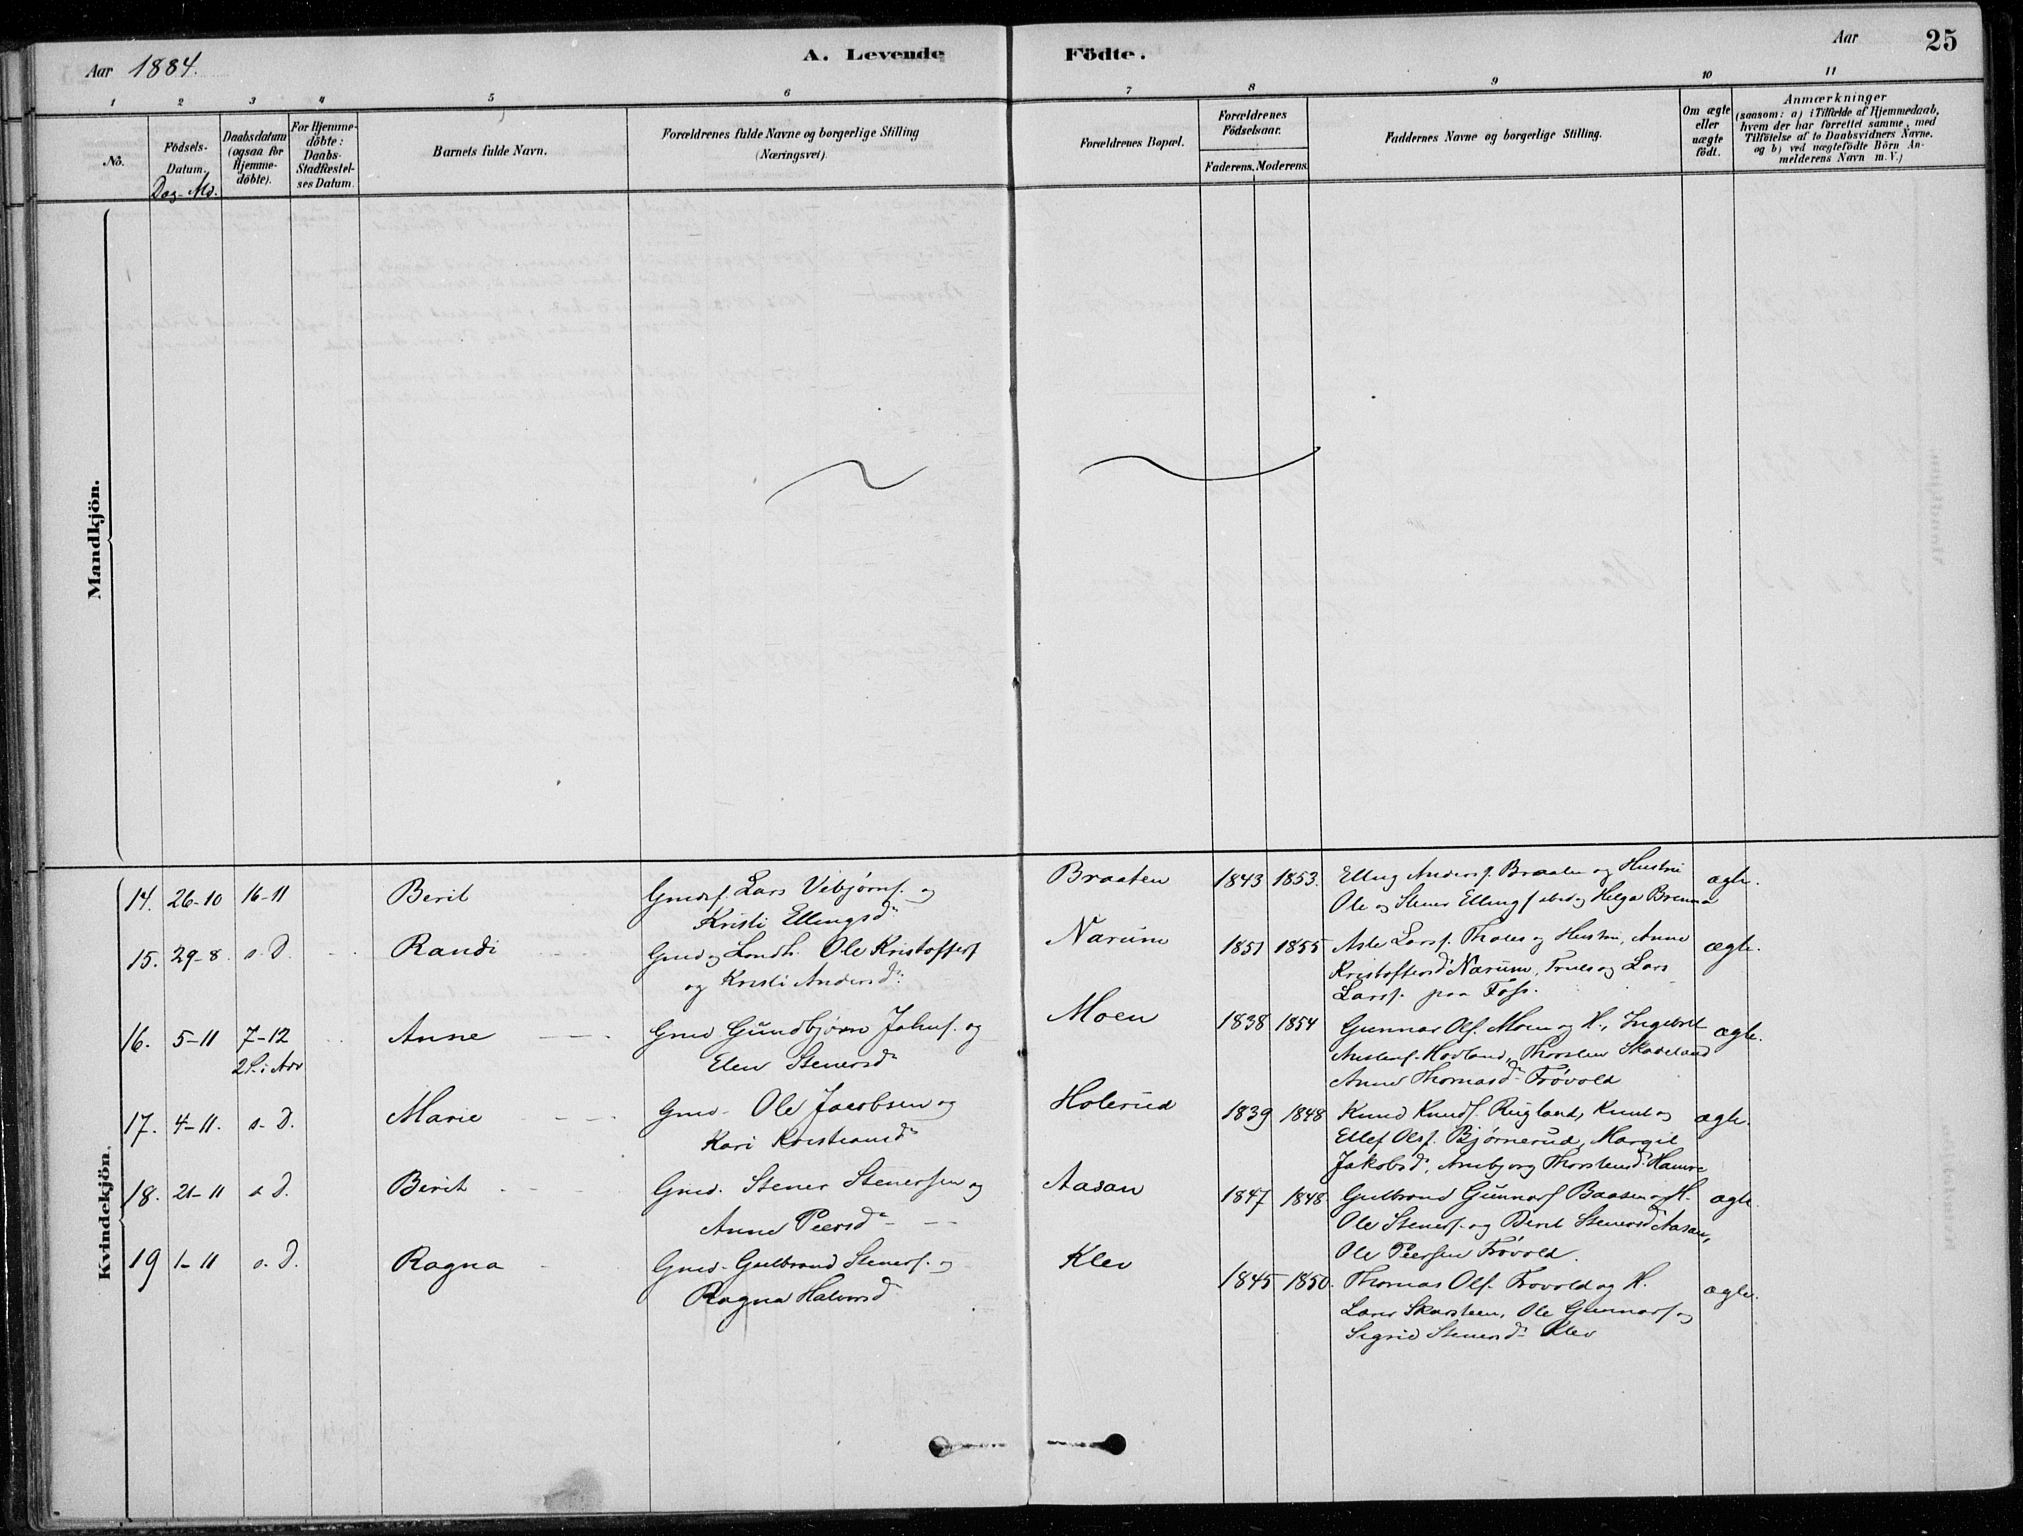 Aar 1884.
A. Levende Födte.
Aar
25
1 2 3 4 5 6 7 8 9 10 11
No.
Födsels-
Datum.
Dag. Md.
Daabsdatum
(ogsaa for
Hjemme-
döbte).
For Hjemme-
döbte:
Daabs-
Stadfæstel-
ses Datum.
Barnets fulde Navn.
Forældrenes fulde Navne og borgerlige Stilling
(Næringsvei).
Forældrenes Bopæl.
Forældrenes
Födselsaar.
Faderens. Moderens.
Faddernes Navne og borgerlige Stilling.
Om ægte
eller
uægte
födt.
Anmærkninger
(saasom: a) i Tilfælde af Hjemmedaab,
hvem der har forrettet samme, med
Tilföielse af to Daabsvidners Navne.
og b) ved uægtefödte Börn An-
melderens Navn m. V.)
Mandkjön.
Kvindekjön.
14. 26-10 16-11 Berit Lars Vebjørns. og Braaten 1843 1853. Elling Anders. Braaten og Hustru ægte.
Kristi Ellingsd. Ole og Stener Ellings. ibid og Helga Brenna
15. 29-8. s. D. Randi Gmd og Ole Kristoffers. Narum 1851 1855 Asle Larss. Tholes og Hustru, Anne ægte.
og Kristi Andersd. Kristoffersd. Narum, Truls og Lars
Larss. paa Foss.
16. 5-11 7-12 Anne Gmd Gundbjørn Johns. og Moen 1838 1854 Gunnar Ols. Moen og H., Ingebret ægte.
2 S. i Adv Elen Stenersd. Austens. Hovland, Thorsten Skadeland
Anne Thomasd. Frøvold
17. 4-11. s. D. Marie Gmd. Ole Jacobsen og Holerud 1839 1848 Knud Knuds. Rugland, Knut og ægte.
Kari Kristiansd. Ellef Ols. Bjørnerud, Margit
Jakobsd., Ambjørg Thorstensd. Hamre
18. 21-11 s. D. Berit Gmd. Stener Stenersen og Aasan 1847 1848 Gulbrand Gunnars. Baasen og H. ægte
Anne Peersd. Ole Steners. og Berit Stenersd. Aasan,
Ole Peersen Frøvold.
19 1-11 s. D. Ragna Gmd. Gulbrand Steners. og Klev 1845 1850. Thomas Ols. Frøvold og H. ægte.
Ragna Halvorsd. Lars Skarsteen, Ole Gunnars. og
Sigrid Stenersd. Klev